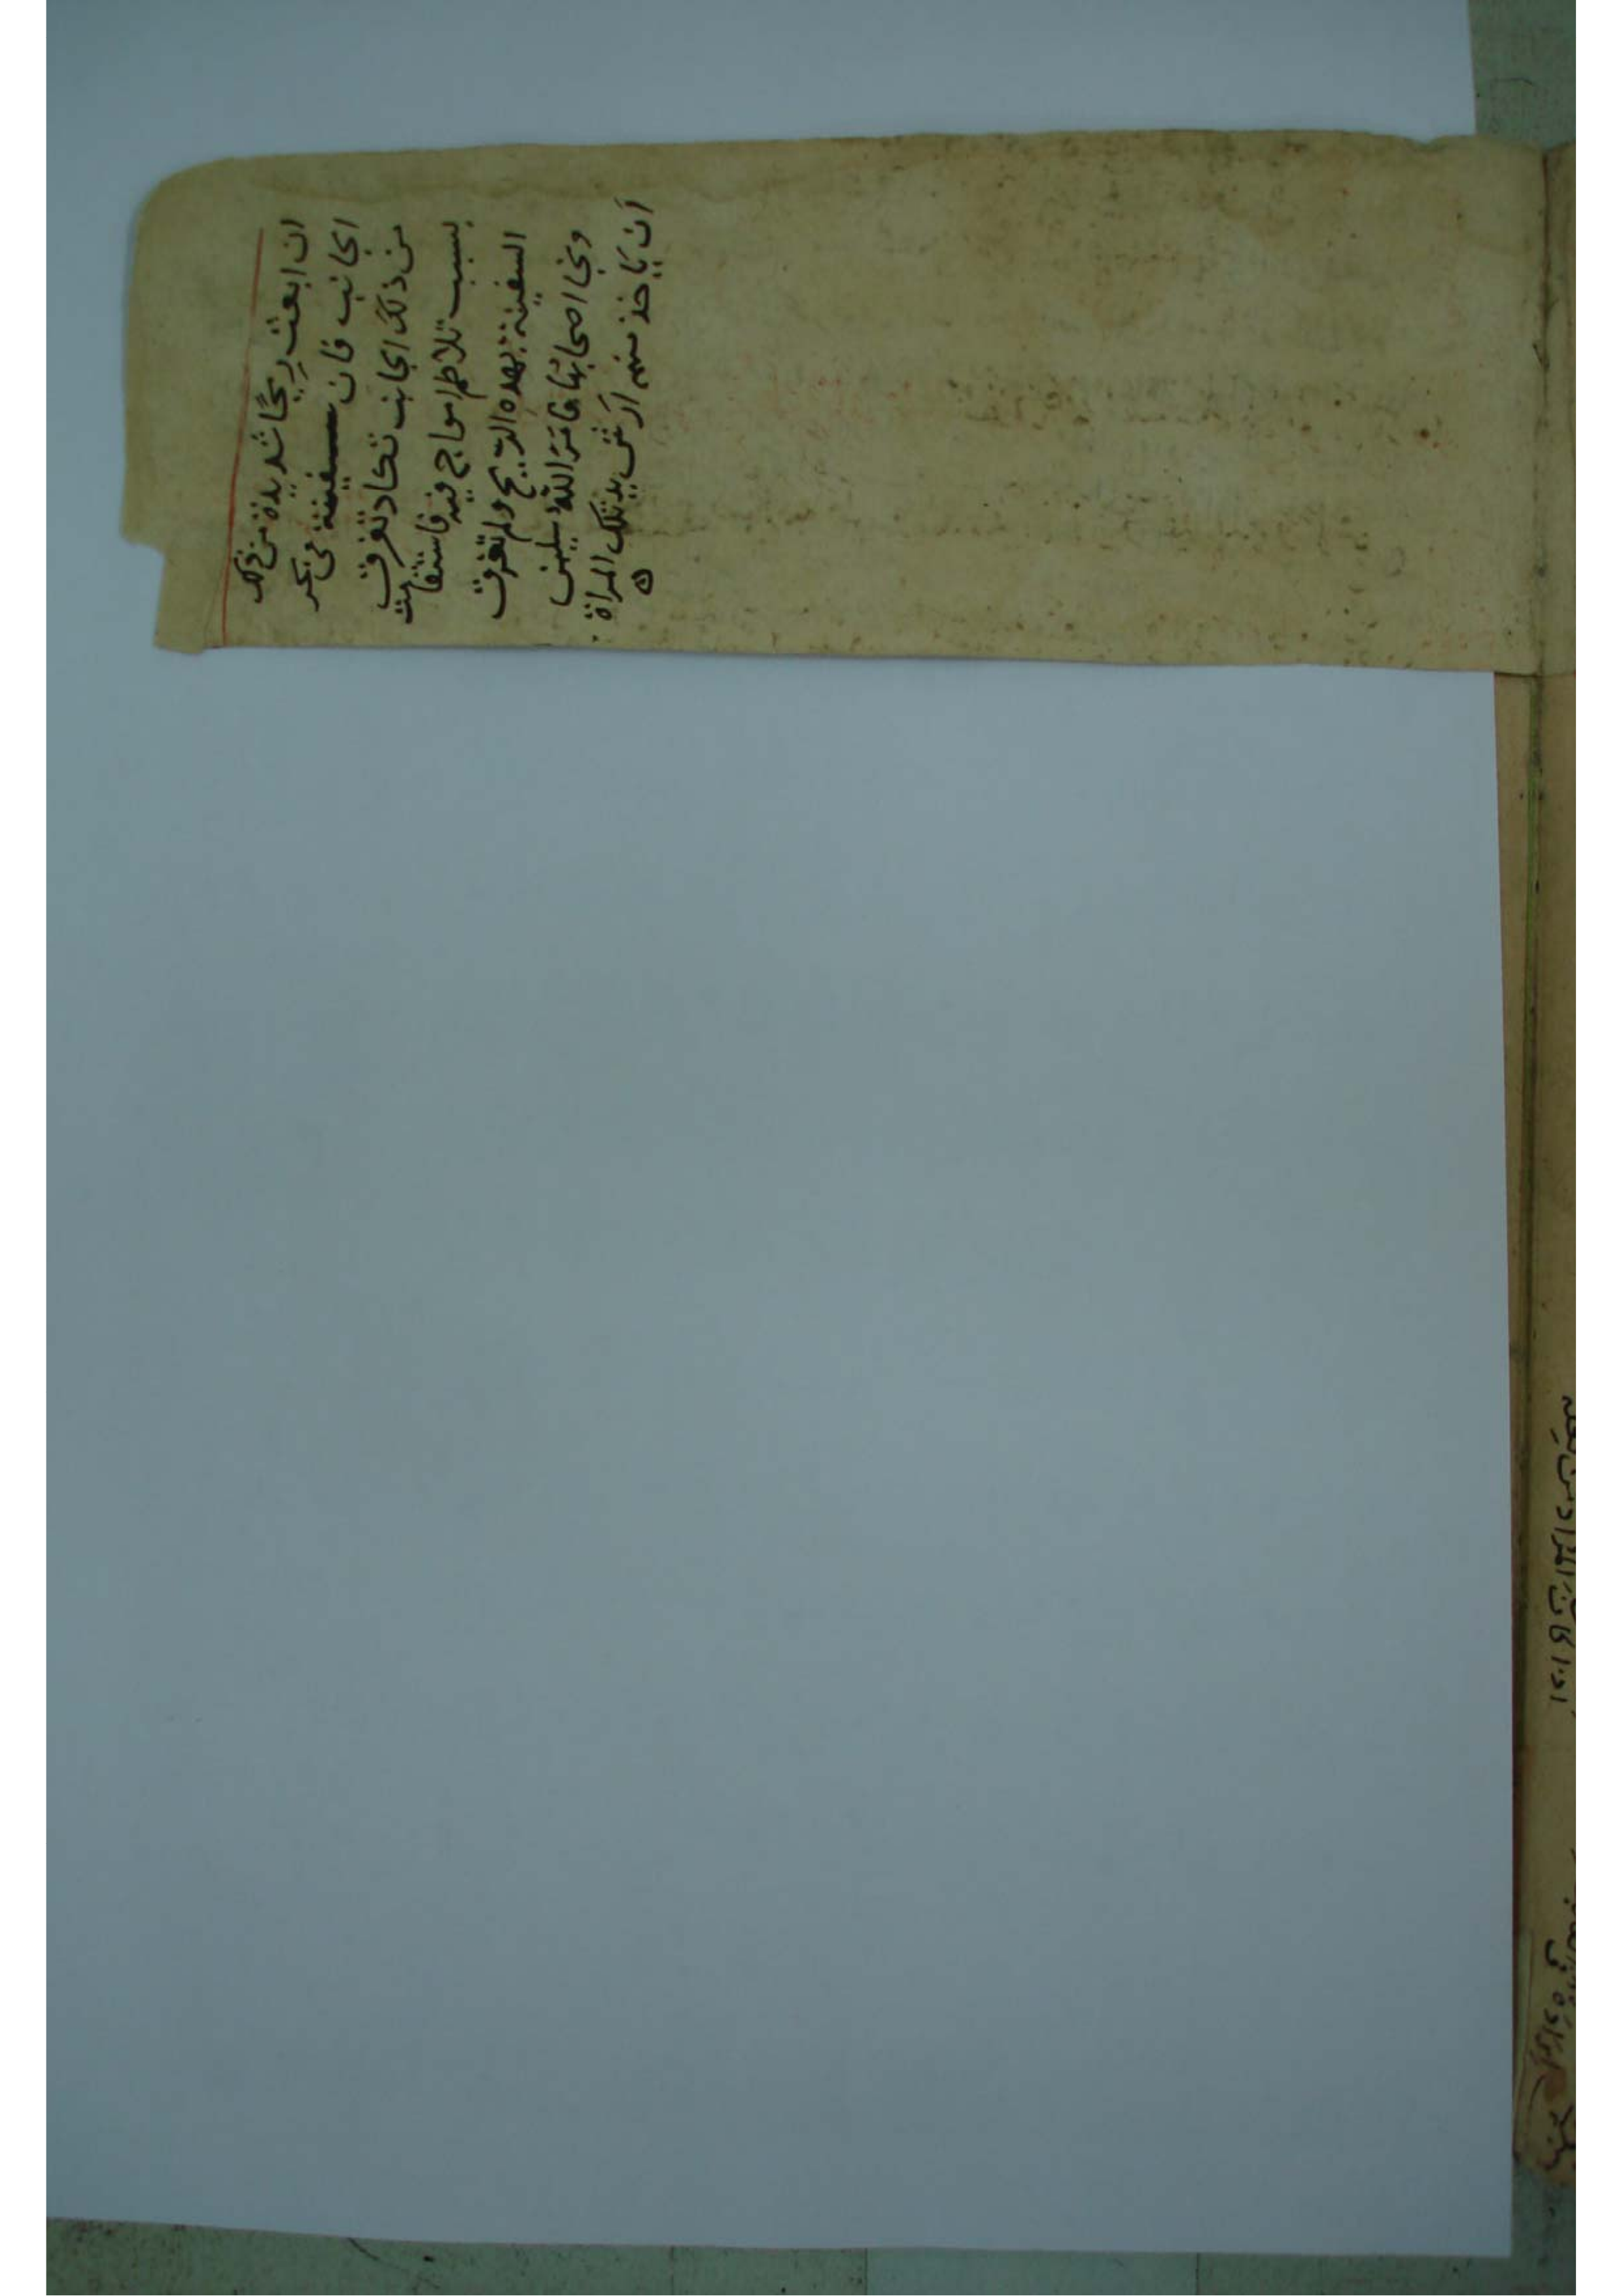 ان ابعث ريحا شديدة من ذلك
الجانب فان سفينة في بحر
من ذلك الجانب تكاد تغرق
بسبب تلاطم امواج فيه فاستقامت
السفينة بهذه الريح ولم تغرق
ونجا اصحابها فامر الله سليمن
ان ياخذ منهم ارش يد تلك المراة